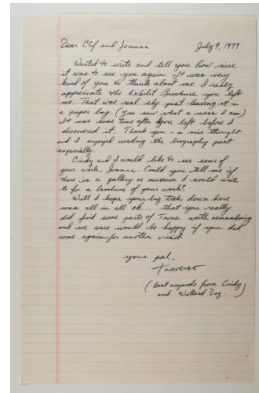 Dear Clif and Joanna July 9, 1977
Wanted to write and tell you how nice
it was to see you again - it was very
kind of you to think about me. I really
appreciate the Exhibit Brochure you left
me. That was real sly just leaving it in
a paper bag (you know what a mess I am)
It was some time after you left before I
discovered it. Thank you - a nice thought
and I enjoyed reading the biography part
especially.
Cindy and I would like to see some of
your work, Joanna. Could you tell me if
there is a gallery or museum I could write
to for a brochure of your work?
Well I hope your big trek down here
was all in all ok. - that you really
did find some parts of worth remembering
and we sure would be happy if you did
come again for another visit.
your pal -
(Best regards from Cindy
and Willard Dog.)